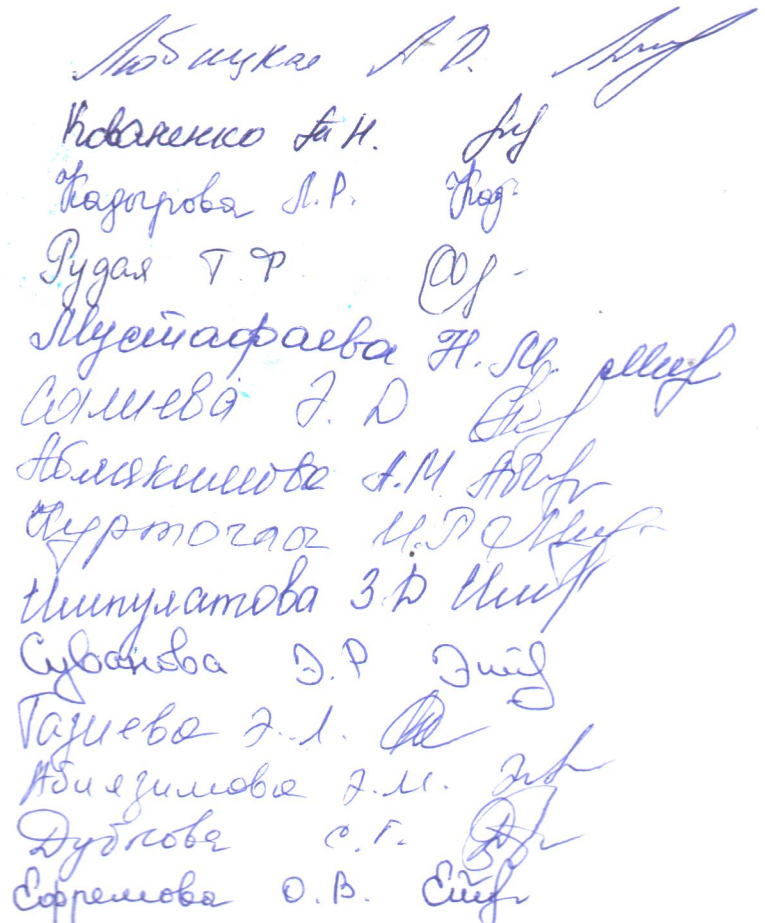 Любицкая А Д.
Коваленко Т Н.
Кадырова Л.Р. Кад
Рудая Т Ф
Мустафаева Н. М.
Салиева Э. Д
Абляkимова А.М.
Куртосаы И.Р
Ишпулатова З Д
Суванова Э.Р
Газиева Э.Л.
Абиязимова Э.М.
Дубкова С.Г.
Ефремова О.В.